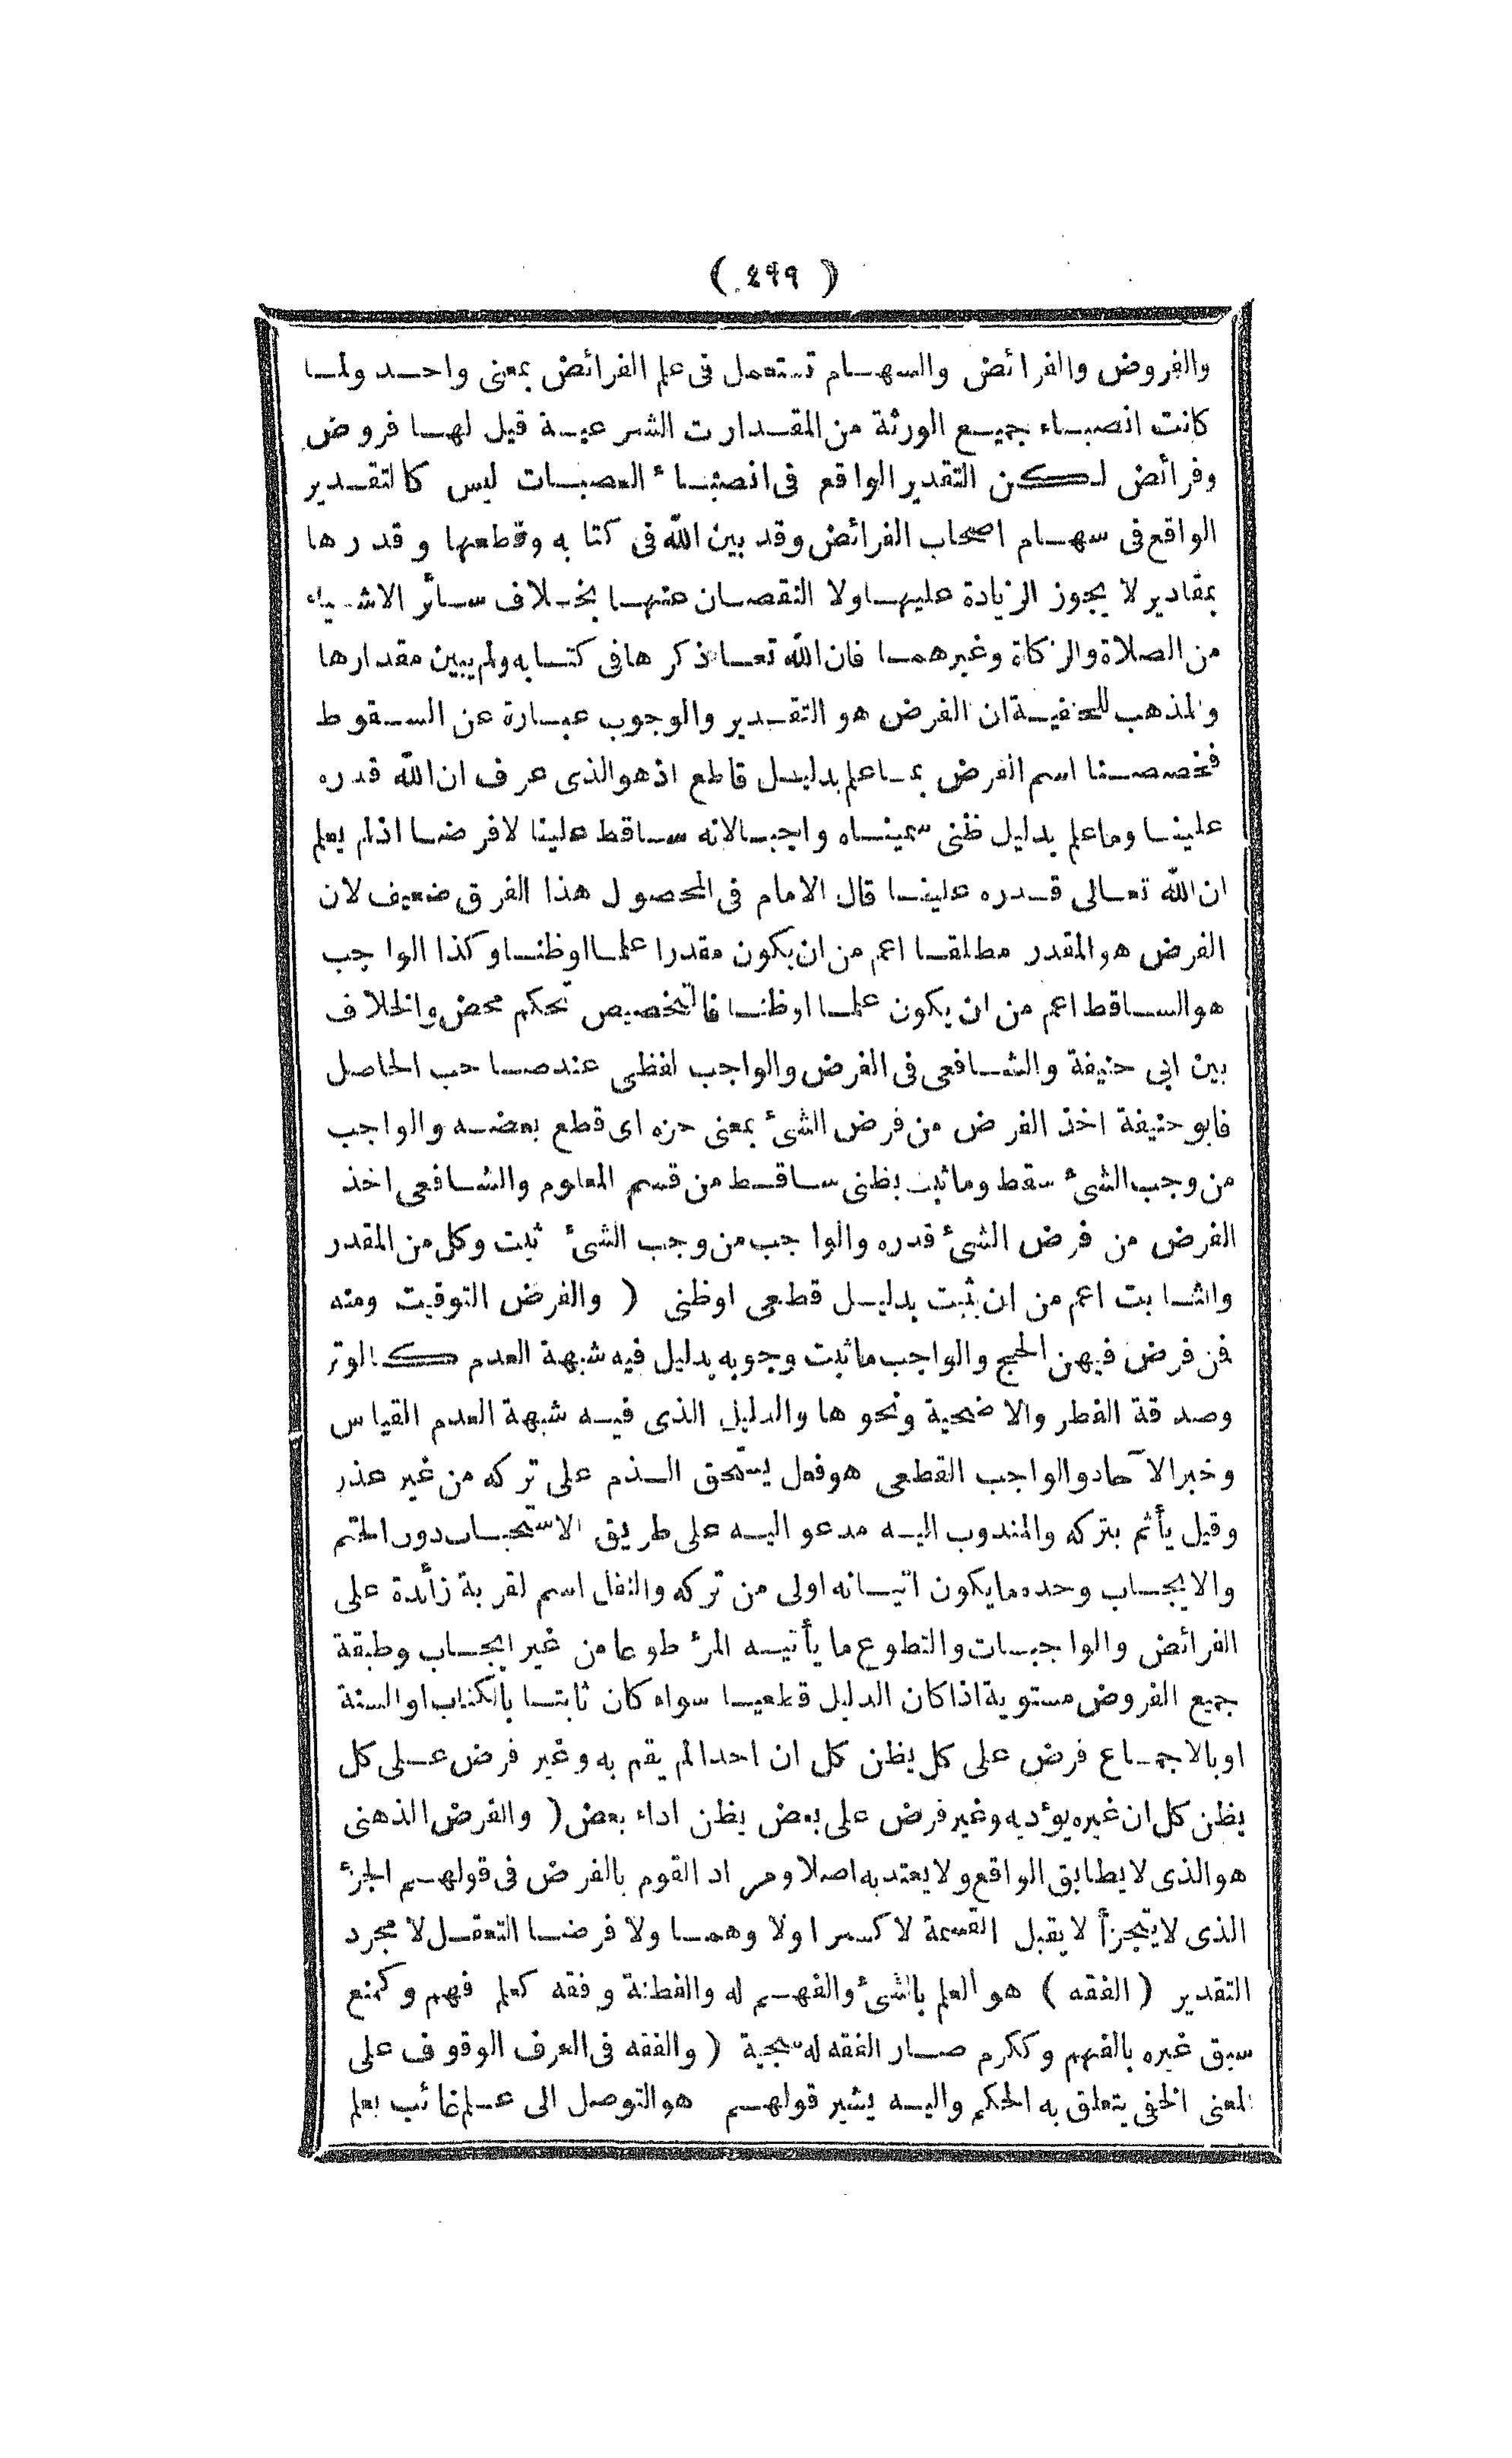 ( ٤٩٩ )
والفروض والفرائض والسهام تستعمل فى علم الفرائض بمعنى واحد ولما
كانت انصباء جميع الورثة من المقدارت الشرعية قيل لها فروض
وفرائض لكن التقدير الواقع فى انصباء العصبات ليس كالتقدير
الواقع فى سهام اصحاب الفرائض وقد بين الله فى كتابه وقطعها وقدرها
بمقادير لا يجوز الزيادة عليها ولا النقصان عنها بخلاف سائر الاشياء
من الصلاة والزكاة وغيرهما فان الله تعا ذكرها فى كتابه ولم يبين مقدارها
والمذهب للحنفية ان الفرض هو التقدير والوجوب عبارة عن السقوط
فخصصنا اسم الفرض بما علم بدليل قاطع اذ هو الذى عرف ان الله قدره
علينا وما علم بدليل ظنى سميناه واجبا لانه ساقط علينا لا فرضا اذ لم يعلم
ان الله تعالى قدره علينا قال الامام فى المحصول هذا الفرق ضعيف لان
الفرض هو المقدر مطلقا اعم من ان يكون مقدرا علما او ظنا وكذا الواجب
هو الساقط اعم من ان يكون علما او ظنا فالتخصيص تحكم محض والخلاف
بين ابى حنيفة والشافعى فى الفرض والواجب لفظى عند صاحب الحاصل
فابو حنيفة اخذ الفرض من فرض الشئ بمعنى حزه اى قطع بعضه والواجب
من وجب الشئ سقط وما ثبت بظنى ساقط من قسم المعلوم والشافعى اخذ
الفرض من فرض الشئ قدره والواجب من وجب الشئ ثبت وكل من المقدر
والثابت اعم من ان يثبت بدليل قطعى او ظنى ( والفرض التوقيت ومنه
فمن فرض فيهن الحج والواجب ما ثبت وجوبه بدليل فيه شبهة العدم كالوتر
وصدقة الفطر والاضحية ونحوها والدليل الذى فيه شبهة العدم القياس
وخبر الآحاد والواجب القطعى هو فعل يستحق الذم على تركه من غير عذر
وقيل يأثم بتركه والمندوب اليه مدعو اليه على طريق الاستحباب دون الحتم
والايجاب وحده ما يكون اتيانه اولى من تركه والنفل اسم لقربة زائدة على
الفرائض والواجبات والتطوع ما يأتيه المرء طوعا من غير ايجاب وطبقة
جميع الفروض مستوية اذا كان الدليل قطعيا سواء كان ثابتا بالكتاب او السنة
او بالاجماع فرض على كل يظن كل ان احدا لم يقم به وغير فرض على كل
يظن كل ان غيره يؤديه وغير فرض على بعض يظن اداء بعض ( والفرض الذهنى
هو الذى لا يطابق الواقع ولا يعتد به اصلا ومراد القوم بالفرض فى قولهم الجزء
الذى لا يتجزأ لا يقبل القسمة لا كسرا ولا وهما ولا فرضا التعقل لا مجرد
التقدير ( الفقه ) هو العلم بالشئ والفهم له والفطنة وفقه كعلم فهم وكمنع
سبق غيره بالفهم وككرم صار الفقه له سجية ( والفقه فى العرف الوقوف على
المعنى الخفى يتعلق به الحكم واليه يشير قولهم هو التوصل الى علم غائب بعلم